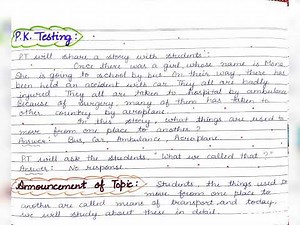 P.K. Testing:
PT will share a story with students".
" Once there was a girl whose name is Mona
She is going to school by bus. On their way, there has
been held an accident with car. They all are badly
injured. They all are taken to hospital by ambulance
because of surgery, many of them has taken to
other country by aeroplane.
In this story, what things are used to
move from one place to another?
Answer: Bus, Car, Ambulance, Aeroplane.
PT will ask the students, "What we called that?"
Answer: No response
Announcement of Topic: Students, the things used to
move from one place to
another are called means of transport and today,
we will study about these in detail.